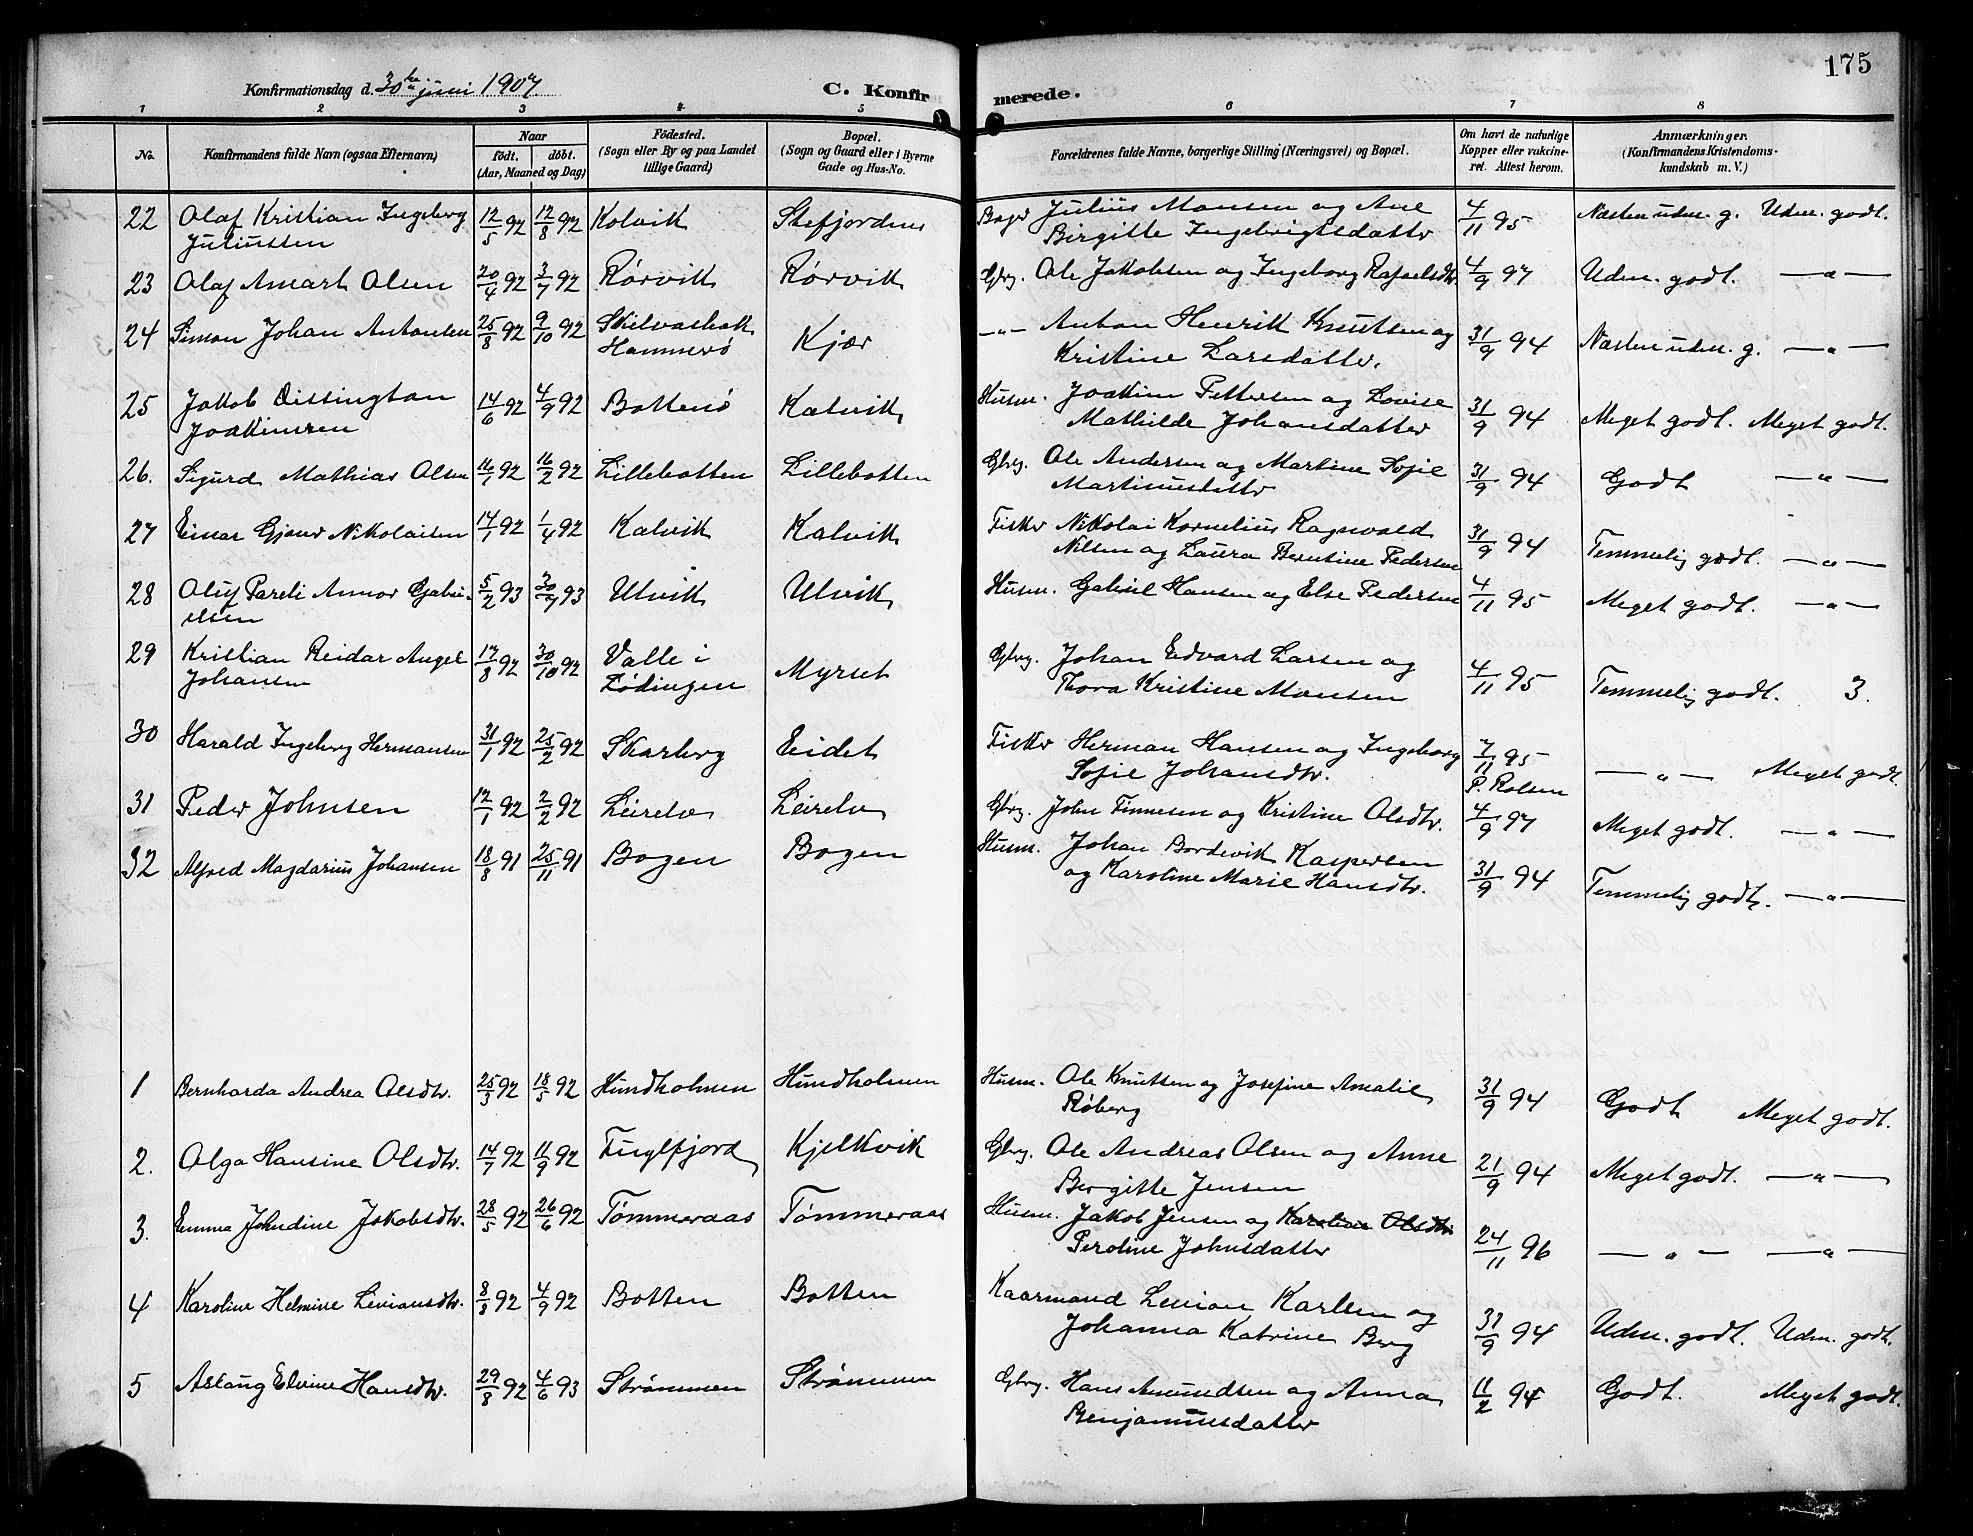 175
Konfirmationsdag d. 30te juni 1907. C. Konfirmerede.
1 2 3 4 5 6 7 8
No. Konfirmandens fulde Navn (ogsaa Efternavn) Naar född. döbt. (Aar, Maaned og Dag) Födested. (Sogn eller By og paa Landet tillige Gaard) Bopæl. (Sogn og Gaard eller i Byerne Gade og Hus-No. Forældrenes fulde Navne, borgerlige Stilling (Næringsvei) og Bopæl. Om havt de naturlige Kopper eller vakcineret. Attest herom. Anmærkninger. (Konfirmandens Kristendomskundskab m. V.)
22 Olaf Kristian Ingeberg 12/5 92 12/8 92 Kolvik Stefjorden Julius Monsen og Ane 4/11 95 Næsten udm. g. Udm. godt.
Juliussen Birgitte Ingebrigtsdatter
23 Olaf Anart Olsen 20/4 92 3/7 92 Rørvik Rørvik Gbrg. Ole Jakobsen og Ingeborg Rafaelsdtr 4/9 97 Udm. godt. — " —
24 Simon Johan Antonsen 25/8 92 9/10 92 Skilvasbak Kjær — " — Anton Henrik Knutsen og 31/9 94 Næsten udm. g. — " —
Hammerø Kristine Larsdatter.
25 Jakob Dissington 14/6 92 4/9 92 Bottenø Kalvik Husm. Joakim Pettersen og Lovise 31/9 94 Meget godt. Meget godt.
Joakimsen Mathilde Johansdatter
26. Sigurd Mathias Olsen 16/1 92 16/2 92 Lillebotten Lillebotten Gbrg. Ole Andersen og Martine Sofie 31/9 94 Godt — " —
Martinusdatter
27 Einar Gjæver Nikolaisen 17/1 92 1/4 92 Kalvik Kalvik Fisker Nikolai Kornelius Ragnvald 31/9 94 Temmelig godt. — " —
Nilsen og Laura Berntine Pedersen
28 Oluf Pareli Annor Gabri- 5/2 93 30/7 93 Ulvik Ulvik Husm. Gabriel Hansen og Else Pedersen 4/11 95 Meget godt. — " —
elsen
29 Kristian Reidar Angel 17/8 92 30/10 92 Valle i Myrset Gbrg. Johan Edvard Larsen og 4/11 95 Temmelig godt. 3.
Johansen Lødingen Thora Kristine Monsen
30 Harald Ingeberg Hermansen 31/1 92 25/2 92 Skarberg Eidet Fisker Herman Hansen og Ingeborg 7/11 95 — " — Meget godt.
Sofie Johansdtr. P. Rolsen
31 Peder Johnsen 12/1 92 2/2 92 Leirelv Leirelv Gbrg. John Finnesen og Kristine Olsdtr. 4/9 97 Meget godt. — " —
32 Alfred Magdarius Johansen 18/8 91 25/11 91 Bogen Bogen Husm. Johan Bordevik Kaspersen 31/9 94 Temmelig godt. — " —
og Karoline Marie Hansdtr.
1 Bernharda Andrea Olsdtr. 25/3 92 18/5 92 Hundholmen Hundholmen Husm. Ole Knutsen og Josefine Amalie 31/9 94 Godt Meget godt.
Røberg
2. Olga Hansine Olsdtr. 14/7 92 11/9 92 Fuglfjord Kjelkvik Gbrg. Ole Andreas Olsen og Anne 21/9 94 Meget godt. — " —
Bergitte Jensen
3. Emma Johndine Jakobsdtr. 28/5 92 26/6 92 Tømmeraas Tømmeraas Husm. Jakob Jensen og Karoline Olsdtr 24/11 96 — " — — " —
Peroline Johnsdatter
4 Karoline Helmine Leviansdtr. 8/8 92 4/9 92 Botten Botten Kaarmand Levian Karlsen og 31/9 94 Udm. godt. Udm. godt.
Johanna Katrine Berg
5 Aslaug Elvine Hansdtr. 29/8 92 4/6 93 Strømmen Strømmen Gbrg. Hans Amundsen og Anna 11/2 94 Godt. Meget godt.
Benjaminsdatter